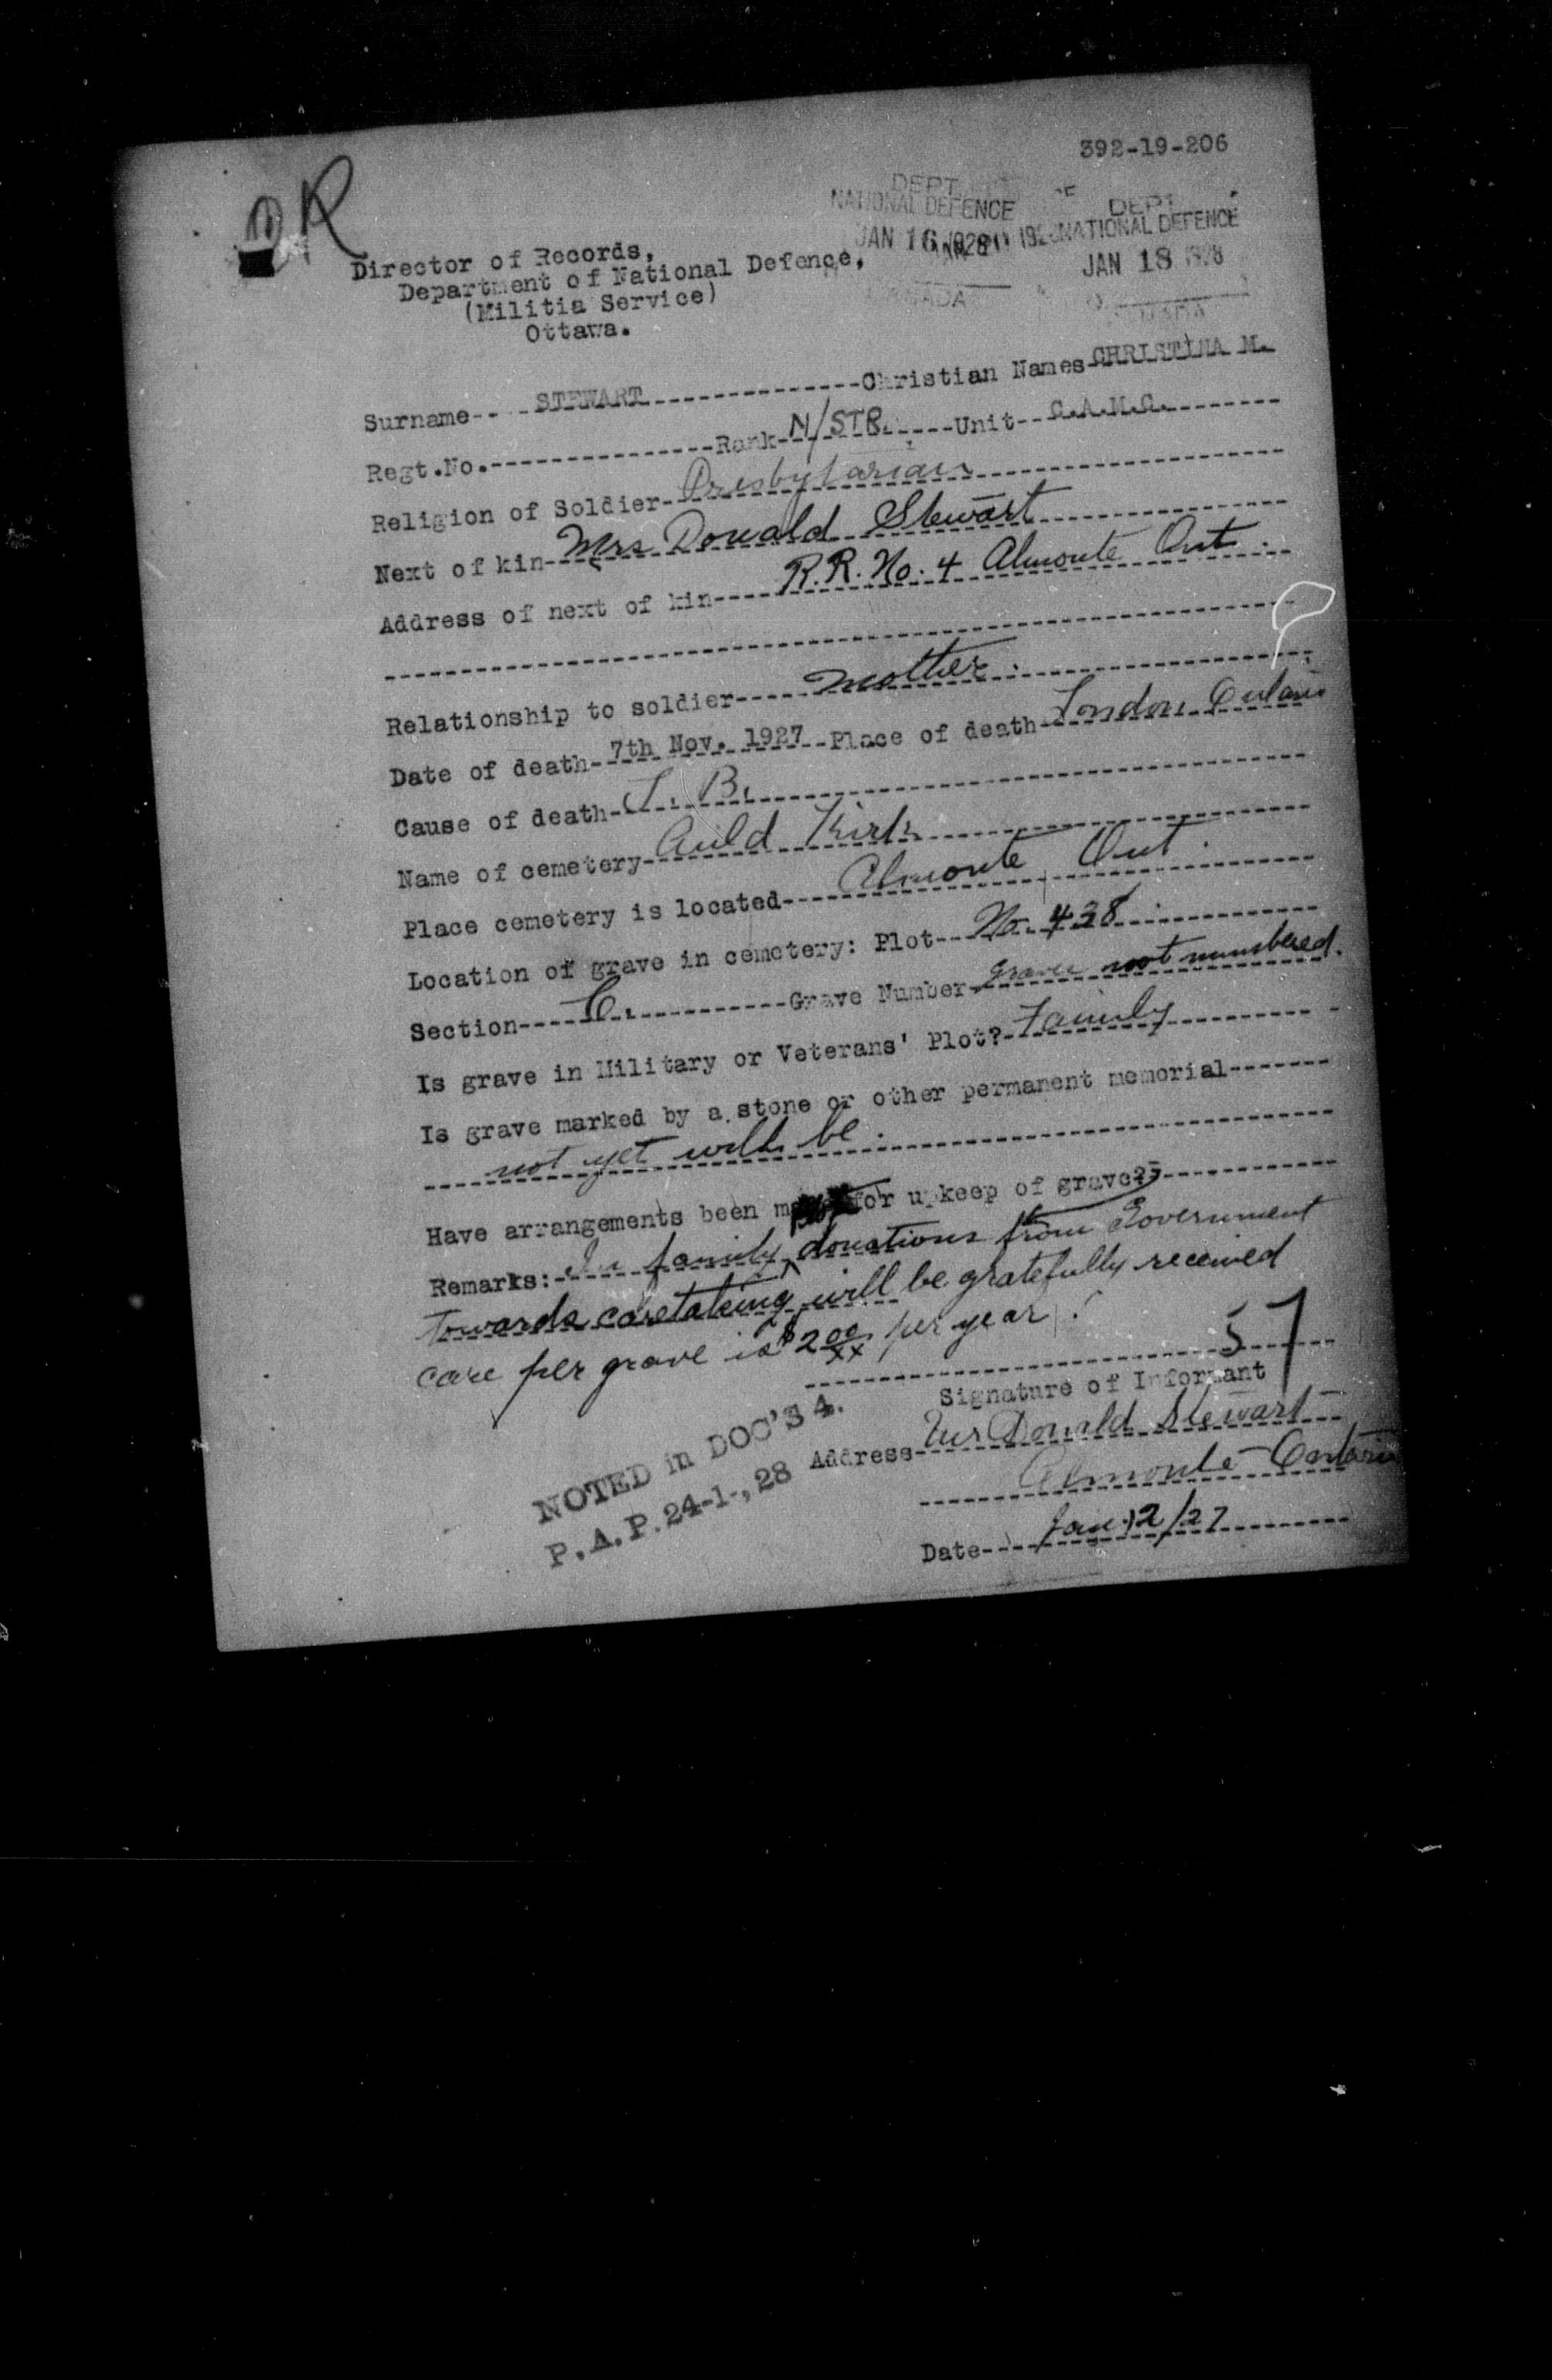 392-19-206
DR
DEPT.
NATIONAL DEFENCE
JAN 16 1928
CANADA
DEPT
NATIONAL DEFENCE
JAN 18 1928
Director of Records,
Department of National Defence,
(Militia Service)
Ottawa.
Surname-- STEWART --------------Christian Names-CHRISTINA M.
Regt.No.---------------Rank-N/STR.----Unit--C.A.M.C.--------
Religion of Soldier-Presbytarian
Next of kin--Mrs Donald Stewart
Address of next of kin----R.R. No. 4 Almonte Ont.
Relationship to soldier----mother.
Date of death-7th Nov. 1927--Place of death-London Ontario
Cause of death-T. B.
Name of cemetery-Auld Kirk
Place cemetery is located----Almonte Ont.
Location of grave in cemetery: Plot--No. 438
Section----C.-----------Grave Number-graves not numbered.
Is grave in Military or Veterans' Plot?-Family
Is grave marked by a stone or other permanent memorial-------
not yet will be.
Have arrangements been made for upkeep of grave?
Remarks:- In family donations from Government
Towards caretaking will be gratefully received
care per grave is $2 00/xx per year.
57
Signature of Informant
Address--Mrs Donald Stewart
Almonte Ontario
Date---Jan 12/27
NOTED in DOC'S 4.
P.A.P. 24-1-,28